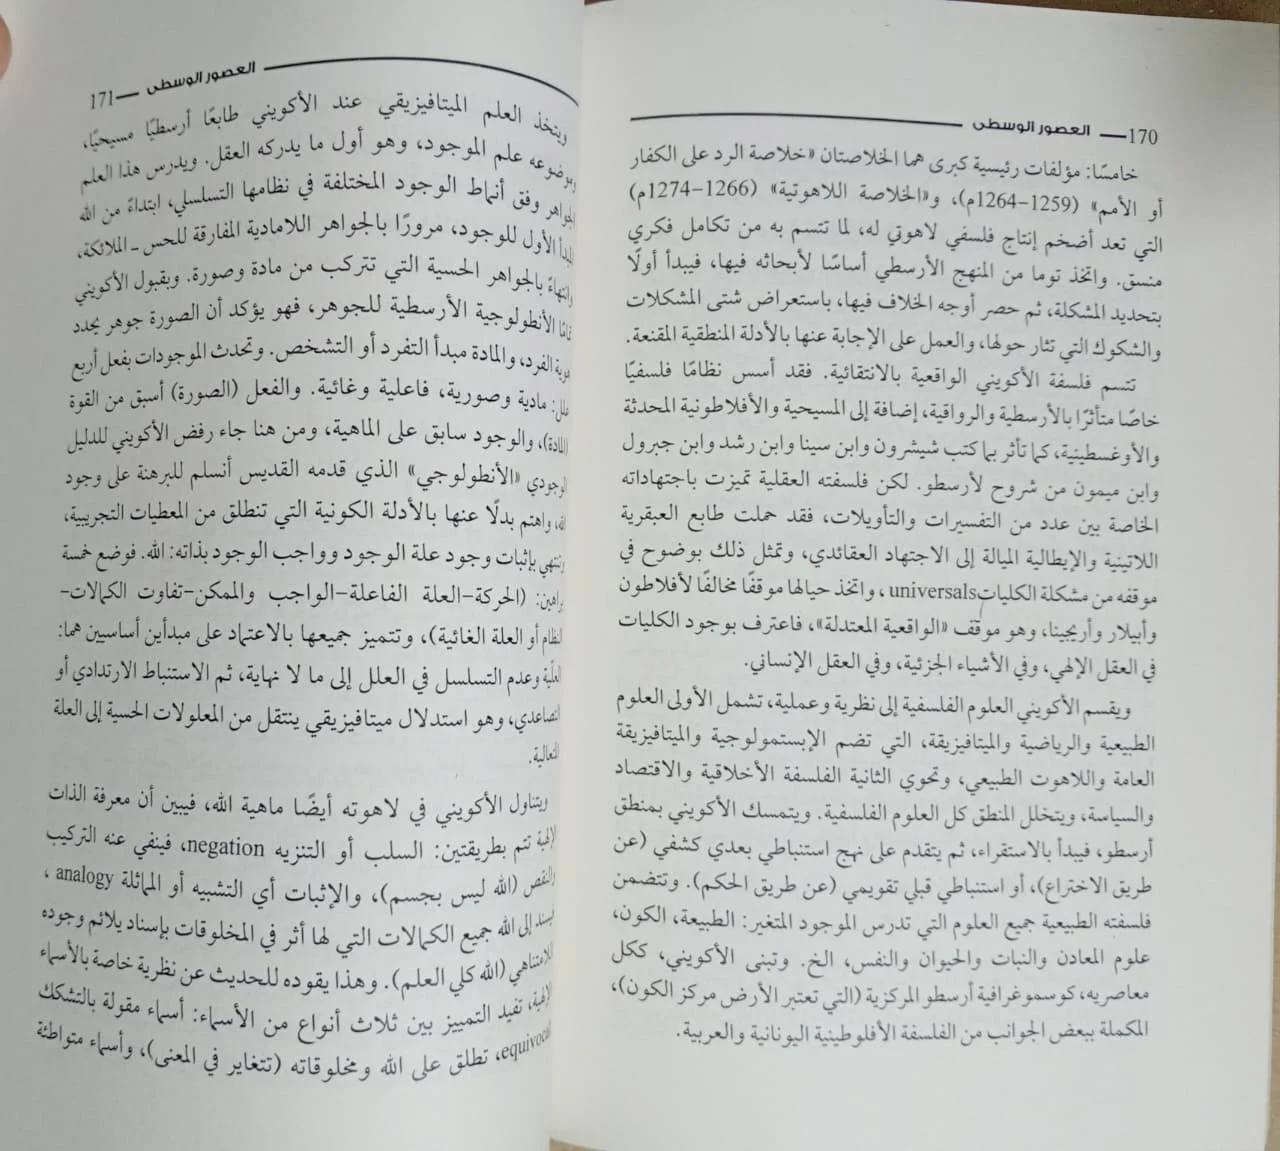 170 — العصور الوسطى
خامسًا: مؤلفات رئيسية كبرى هما الخلاصتان «خلاصة الرد على الكفار
أو الأمم» (1259–1264م)، و«الخلاصة اللاهوتية» (1266–1274م)
التي تعد أضخم إنتاج فلسفي لاهوتي له، لما تتسم به من تكامل فكري
منسق. واتخذ توما من المنهج الأرسطي أساسًا لأبحاثه فيها، فيبدأ أولًا
بتحديد المشكلة، ثم حصر أوجه الخلاف فيها، باستعراض شتى المشكلات
والشكوك التي تثار حولها، والعمل على الإجابة عنها بالأدلة المنطقية المقنعة.
تتسم فلسفة الأكويني الواقعية بالانتقائية. فقد أسس نظامًا فلسفيًا
خاصًا متأثرًا بالأرسطية والرواقية، إضافة إلى المسيحية والأفلاطونية المحدثة
والأوغسطينية، كما تأثر بما كتب شيشرون وابن سينا وابن رشد وابن جبرول
وابن ميمون من شروح لأرسطو. لكن فلسفته العقلية تميزت باجتهاداته
الخاصة بين عدد من التفسيرات والتأويلات، فقد حملت طابع العبقرية
اللاتينية والإيطالية الميالة إلى الاجتهاد العقائدي، وتمثل ذلك بوضوح في
موقفه من مشكلة الكليات universals، واتخذ حيالها موقفًا مخالفًا لأفلاطون
وأبيلار وأريجينا، وهو موقف «الواقعية المعتدلة»، فاعترف بوجود الكليات
في العقل الإلهي، وفي الأشياء الجزئية، وفي العقل الإنساني.
ويقسم الأكويني العلوم الفلسفية إلى نظرية وعملية، تشمل الأولى العلوم
الطبيعية والرياضية والميتافيزيقة، التي تضم الإبستمولوجية والميتافيزيقة
العامة واللاهوت الطبيعي، وتحوي الثانية الفلسفة الأخلاقية والاقتصاد
والسياسة، ويتخلل المنطق كل العلوم الفلسفية. ويتمسك الأكويني بمنطق
أرسطو، فيبدأ بالاستقراء، ثم يتقدم على نهج استنباطي بعدي كشفي (عن
طريق الاختراع)، أو استنباطي قبلي تقويمي (عن طريق الحكم). وتتضمن
فلسفته الطبيعية جميع العلوم التي تدرس الموجود المتغير: الطبيعة، الكون،
علوم المعادن والنبات والحيوان والنفس، الخ. وتبنى الأكويني، ككل
معاصريه، كوسموغرافية أرسطو المركزية (التي تعتبر الأرض مركز الكون)،
المكملة ببعض الجوانب من الفلسفة الأفلوطينية اليونانية والعربية.
العصور الوسطى — 171
ويتخذ العلم الميتافيزيقي عند الأكويني طابعًا أرسطيًا مسيحيًا،
وموضوعه علم الموجود، وهو أول ما يدركه العقل. ويدرس هذا العلم
الجواهر وفق أنماط الوجود المختلفة في نظامها التسلسلي، ابتداءً من الله
المبدأ الأول للوجود، مرورًا بالجواهر اللامادية المفارقة للحس ـ الملائكة،
وانتهاءً بالجواهر الحسية التي تتركب من مادة وصورة. وبقبول الأكويني
تمامًا الأنطولوجية الأرسطية للجوهر، فهو يؤكد أن الصورة جوهر يحدد
هوية الفرد، والمادة مبدأ التفرد أو التشخص. وتحدث الموجودات بفعل أربع
علل: مادية وصورية، فاعلية وغائية. والفعل (الصورة) أسبق من القوة
(المادة)، والوجود سابق على الماهية، ومن هنا جاء رفض الأكويني للدليل
الوجودي «الأنطولوجي» الذي قدمه القديس أنسلم للبرهنة على وجود
الله، واهتم بدلًا عنها بالأدلة الكونية التي تنطلق من المعطيات التجريبية،
وتنتهي بإثبات وجود علة الوجود وواجب الوجود بذاته: الله. فوضع خمسة
براهين: (الحركة–العلة الفاعلة–الواجب والممكن–تفاوت الكمالات–
النظام أو العلة الغائية)، وتتميز جميعها بالاعتماد على مبدأين أساسيين هما:
العلّية وعدم التسلسل في العلل إلى ما لا نهاية، ثم الاستنباط الارتدادي أو
التصاعدي، وهو استدلال ميتافيزيقي ينتقل من المعلولات الحسية إلى العلة
المتعالية.
ويتناول الأكويني في لاهوته أيضًا ماهية الله، فيبين أن معرفة الذات
الإلهية تتم بطريقتين: السلب أو التنزيه negation، فينفي عنه التركيب
والنقص (الله ليس بجسم)، والإثبات أي التشبيه أو المماثلة analogy،
فيسند إلى الله جميع الكمالات التي لها أثر في المخلوقات بإسناد يلائم وجوده
اللامتناهي (الله كلي العلم). وهذا يقوده للحديث عن نظرية خاصة بالأسماء
الإلهية، تفيد التمييز بين ثلاث أنواع من الأسماء: أسماء مقولة بالتشكك
equivocal، تطلق على الله ومخلوقاته (تتغاير في المعنى)، وأسماء متواطئة